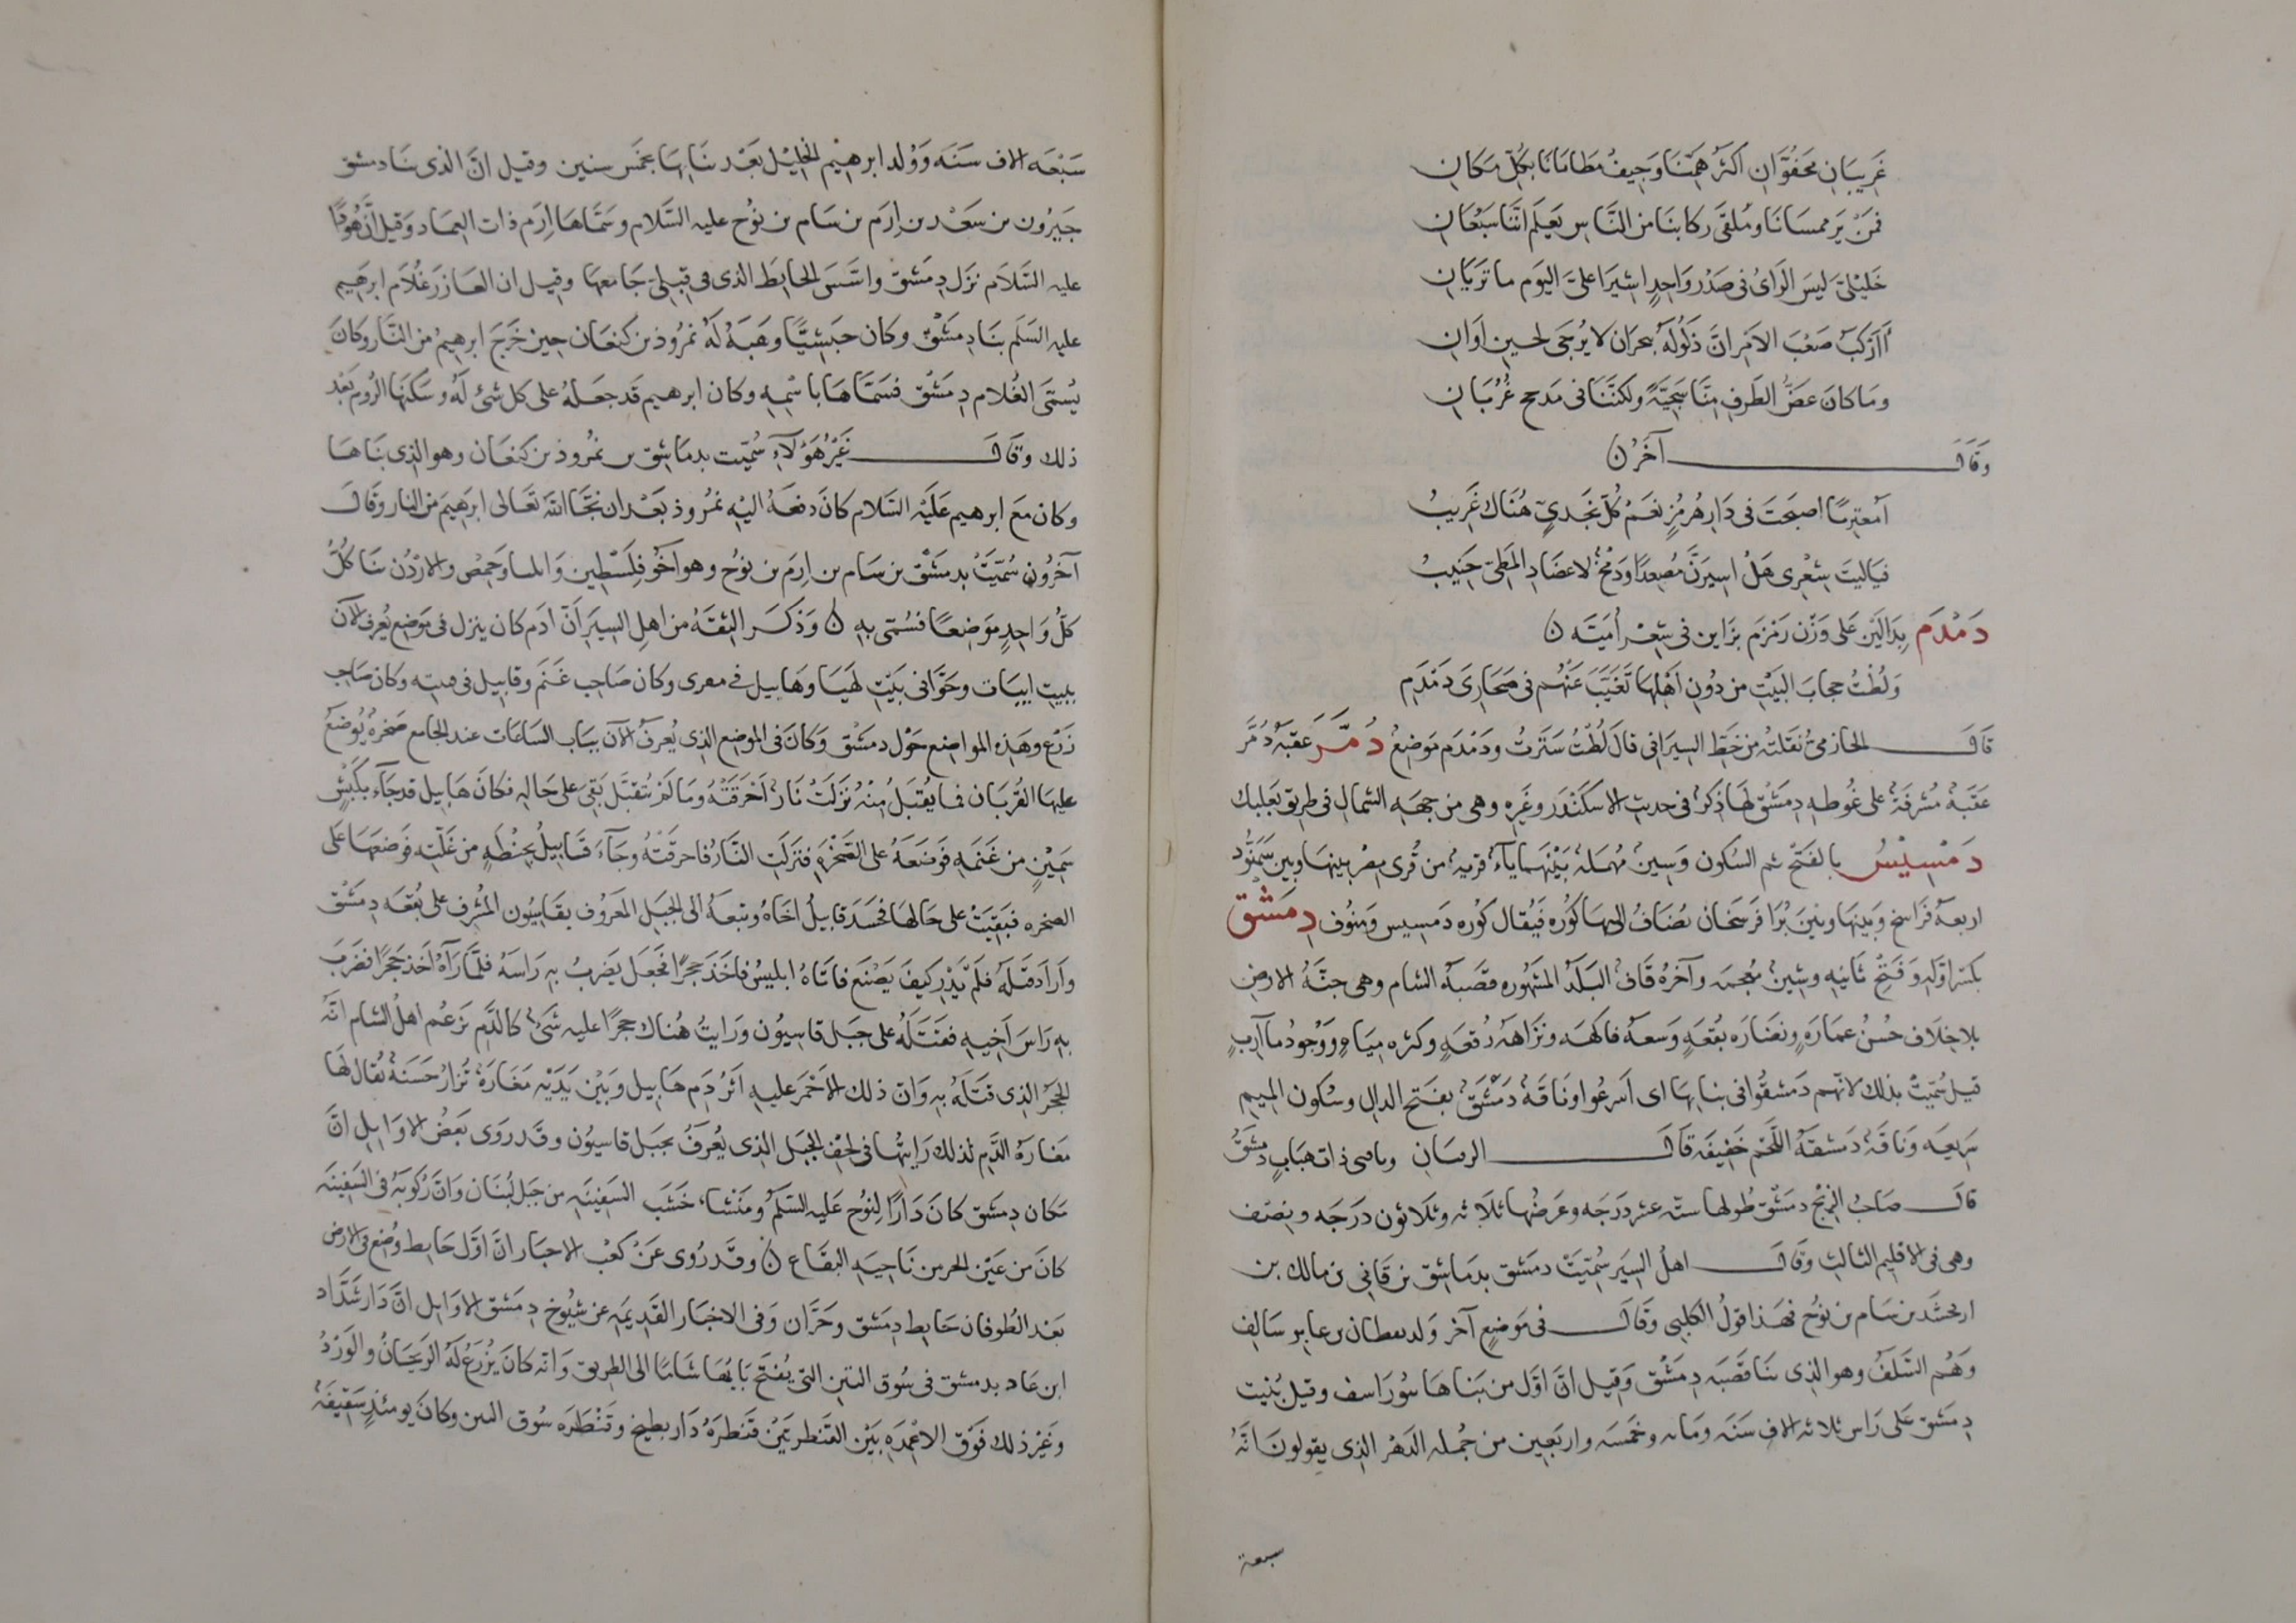 غَرِيبَانِ مَجفُوَّانِ اكثَرُ هَمِّنَا وَجِيفُ مَطَايَانَا بكُلِّ مَكانِ
فمَنْ يَرَ ممسَانَا ومُلقَى رِكابنَا من النَّاسِ يَعلَم انَّنَا سَبُعَانِ
خَليْلىَّ لَيسَ الرَاىُ فى صَدْرِ وَاحِدٍ اشيرَا علىَّ اليَوم ما تَرَيَانِ
أَأَركَبُ صَعْبَ الامَرِ انَّ ذَلُولَهُ بنجرَان لا يُرجَى لحينِ اوَانِ
وَمَا كانَ غضُّ الطَرفِ مِنَّا سَجيَّةً ولكنَّنَا فى مَذحج غُرُبَانِ
وَقَالَ آخَرُ ن
أمغتربًا اصبَحَتَ فى دَارِ هُرمُزٍ نعَمْ كُلُّ نجَدىٍّ هُنَاكَ غَريبُ
فيَاليتَ شِعْرِى هَلْ اسيَرنَّ مُصعدًا وَدَمْخٌ لاعضَادِ المَطِىِّ جَنيبُ
دَمْدَم بِدَالَيَن عَلى وَزْن زَمزَم بزَاين فى شِعْر أُمَيَّه ن
وَلُطْتُ حجابَ البَيْتِ من دُونِ اهْلِهَا تَغَيَّبَ عَنْهُم فى صَحَارى دَمْدَمِ
قَالَ الحازمىُّ نقَلتُه مِن خَطِّ السيرَافى قالَ لُطْتُ سَتَرتُ ودَمْدَم مَوضِعٌ دُمَّر عقبَةُ دُمَّر
عَقَبَةٌ مُشرفَةٌ على غُوطه دِمَشْق لهَا ذكرٌ فى حديث الاسكَندَر وغَيره وهى من جهَه الشمال فى طريق بَعْلبك
دَمْسِيْسُ بالفَتْحِ ثم السكُون وَسينٌ مُهمَلَهٌ بَيْنَهما ياءٌ قريهٌ من قُرى مِصْر بينهَا وبين سَمنُّود
اربعهُ فَرَاسخ وَبينهَا وبينَ بَرَا فَرسَخان يُضَافُ اليهَا كُورَه فَيُقال كُورَه دَمسِيس ومَنُوف دِمَشْق
بكسْر اوّلهِ وَفتحِ ثَانيهِ وشينٌ مُعجمَه وآخرُهُ قَافٌ البَلَدُ المَشهُوره قصَبهُ الشام وهى جنَّةُ الارضِ
بلا خِلَاف حُسْن عمَارَهٍ ونضَارَه بُقعَهٍ وَسعَهُ فاكهَه ونَزَاهَهُ رُقعَهٍ وكَثره ميَاهٍ وَوُجودُ مآرِب
قيلَ سُمّيتْ بذلك لانَّهم دَمشقُوا فى بنايِهَا اى اسرعُوا ونَاقَهٌ دَمْشَقٌ بفتَحِ الدال وسُكون الميم
سَريعَه وَناقَهٌ دَمشقَهُ اللّحْمِ خَفِيفَه قَالَ الزفيَان وصاحبى ذات هِبَابٍ دَمشَقُ
قالَ صَاحبُ الزيْج دمشق طُولهَا ستّه عشر دَرَجه وعَرضُهَا ثلاَثه وثلاَثون دَرَجَه ونِصْف
وهى فى الاقليم الثالث وقَالَ اهلُ السيَر سُمّيَتْ دمَشق بدَماشق بن قَانى بن مالك بن
ارفخشَذ بن سَام بن نوُح فهَذا قولُ الكلبِى وقَالَ فى مَوضِعٍ آخرَ وَلد يعطان بن عابر سَالف
وَهُم السَّلَفُ وهو الذى بنا قَصَبَه دِمَشْق وَقيلَ انَّ اوَّل من بَناهَا بيُورَاسف وقيل بُنِيت
دِمَشق عَلى رَاس ثلاثه الاف سَنَه ومَايه وخمَسه واربَعين من جُملهِ الدَهْر الذى يقولونَ انَّهُ
سبعة
سَبْعَه الاف سَنَه وَوُلد ابرهيْم الخليْل بَعْد بنَايهَا بخَمس سنين وقيل انَّ الذى بنَا دمشق
جَيرُون بن سَعْد بن اِرَم بن سَام بن نوُح عليه السَّلام وسَمَّاهَا اِرَم ذات العمَاد وَقيل انَّ هُودًا
عليه السَّلاَم نزَل دِمَشق واسَّسَ الحايطَ الذى فى قبلىّ جَامعها وقيل ان العَازر غلَام ابرهَيم
عليه السَّلم بنَا دِمَشْق وكان حبَشيًّا وهَبَهُ لَهُ نمرُوذ بن كنعَان حين خرَجَ ابرهيمُ من النَّار وكانَ
يُسمَّى الغُلام دِمَشْق فسَمَّاهَا باسْمِه وكان ابرهيم قَد جعَلهُ على كل شئ لَهُ وسَكنَهَا الرُوم بَعْد
ذلك وقَالَ غَيْرُ هَؤلآءِ سُمّيت بدمَاشِق بن نمرُوذ بن كنعَان وهو الذى بنَاهَا
وكان مَعَ ابرهيم عَلَيْه السَّلام كانَ دفعَهُ اليْه نمرُوذ بَعْد ان نجَّا اللّهُ تعَالى ابرَهيَم من النار وقَالَ
آخَرُون سُمّيَتْ بدمَشْق بن سَام بن اِرَم بن نوُح وهو اَخُو فِلَسْطين وَايليا وَحِمْص والارْدُن بنَا كُلُّ
كلّ وَاحِدٍ مَوضِعًا فسُمّى به ن وَذكَر الثقَهُ من اهلِ السيَر اَنّ آدَم كان ينزل فى مَوضِع يُعرف الآنَ
ببيت ابيَات وحَوَّا فى بَيْت لهيَا وهَابيل فى مقرى وكان صَاحب غَنم وقابيل فى قينيه وكان صَاحب
زَرْع وهَذه المواضِع حَوْل دمَشْق وَكانَ فى الموضِع الذى يُعرفُ الآنَ ببَاب السَاعات عند الجامع صَخرهٌ يُوضَعُ
عليهَا القُربَان فما يُقبَلُ مِنْهُ نزَلَتْ نَارٌ اَحْرَقتْهُ ومَا لَم يُتقبَّل بَقىَ على حَاله فكانَ هَابيل قد جَآءَ بكَبشٍ
سَمينٍ من غَنَمه فوَضعَهُ على الصَّخرَهِ فنزلَتِ النَّارُ فاحرقَتْهُ وجَآءَ قَابيلُ بحِنْطهٍ من غَلّتِه فوَضعَهَا عَلى
الصخره فبَقيتَ على حَالهَا فحَسَد قابيلُ اخَاهُ وتبعَهُ الى الجبَل المَعرُوف بقَاسيُون المشْرف على بُقعَه دمَشْق
وَاَرَادَ قتلَهُ فلَم يَدْرِ كيفَ يَصْنَع فاتَاهُ ابليسُ فاخَذَ حجَرًا فجعَل يَضربُ به رَاسَهُ فلمَّا رَآهُ اَخذ حجَرًا فضَربَ
بهِ رَاسَ اَخيهِ فقَتَلَهُ على جَبل قاسيُون وَرَايتُ هُناكَ حجرًا عليه شئٌ كالدَّم يَزعُم اهلُ الشام انّهُ
الحَجَرُ الذى قتَلَهُ بهِ وَانّ ذلك الاَحْمَر عليهِ اَثرُ دَم هَابيل وَبيْن يَدَيْه مغَارَهٌ تُزَارُ حَسَنَهٌ يُقال لهَا
مغَارَهُ الدَّم لذلك رَايتُهَا فى لحْفِ الجبَل الذى يُعْرفُ بجبَل قاسيُون وقَد رَوى بَعْضُ الاوَايلِ انَّ
مَكان دِمَشق كانَ دَارًا لنوُح عَليه السَّلَم ومَنْشاءُ خشَب السَفينَهِ من جَبل لُبنَان وَانّ ركُوبَهُ فى السَفينَه
كانَ من عَيْن الجر من نَاحيَه البقَاع ن وقَد رُوى عَنْ كعْب الاحبَار انَّ اوَّل حَايط وُضِع فى الارض
بَعْد الطُوفان حَايط دِمَشق وحَرَّان وَفى الاخبَار القَديمَه عن شيُوخ دِمَشق الاوَايل انَّ دَار شَدَّاد
ابن عَاد بدمشق فى سُوق التين التى يُفتح بَابُهَا شَامًا الى الطريق وَانّه كانَ يُزرَعُ لَهُ الرَيحَانُ والوَردُ
وغَيْر ذلك فَوْق الاعْمدَه بَيْن القنطرتيَنْ قنطرَهُ دَار بطيخ وقَنْطَرَه سُوق التين وكانَ يومَئذٍ سَقيفَهٌ